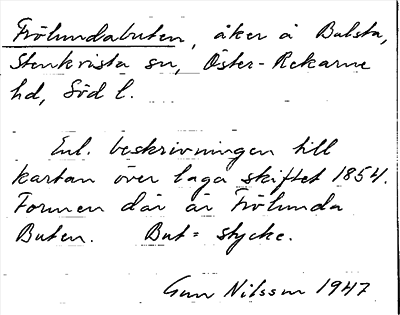 Frölundabuten, åker å Balsta,
Stenkvista sn, Öster-Rekarne
hd, Söd l.
Enl. beskrivningen till
kartan över laga skiftet 1854.
Formen där är Frölunda
Buten. But = stycke.
Gun Nilsson 1947